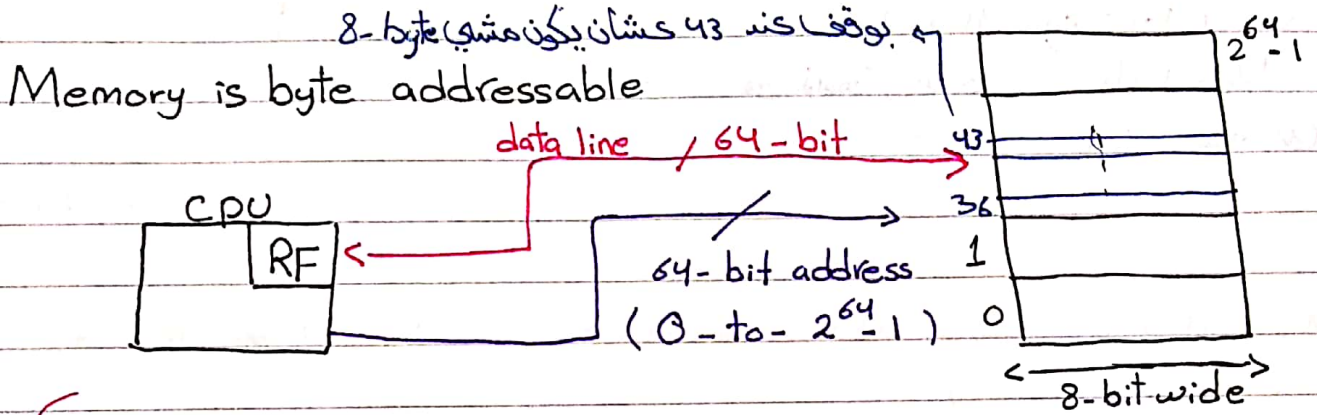 بوقف عند 43 عشان يكون مشي 8-byte
2^64-1
Memory is byte addressable
data line / 64-bit
43
CPU
36
RF
64-bit address
1
(0-to-2^64-1)
0
8-bit wide